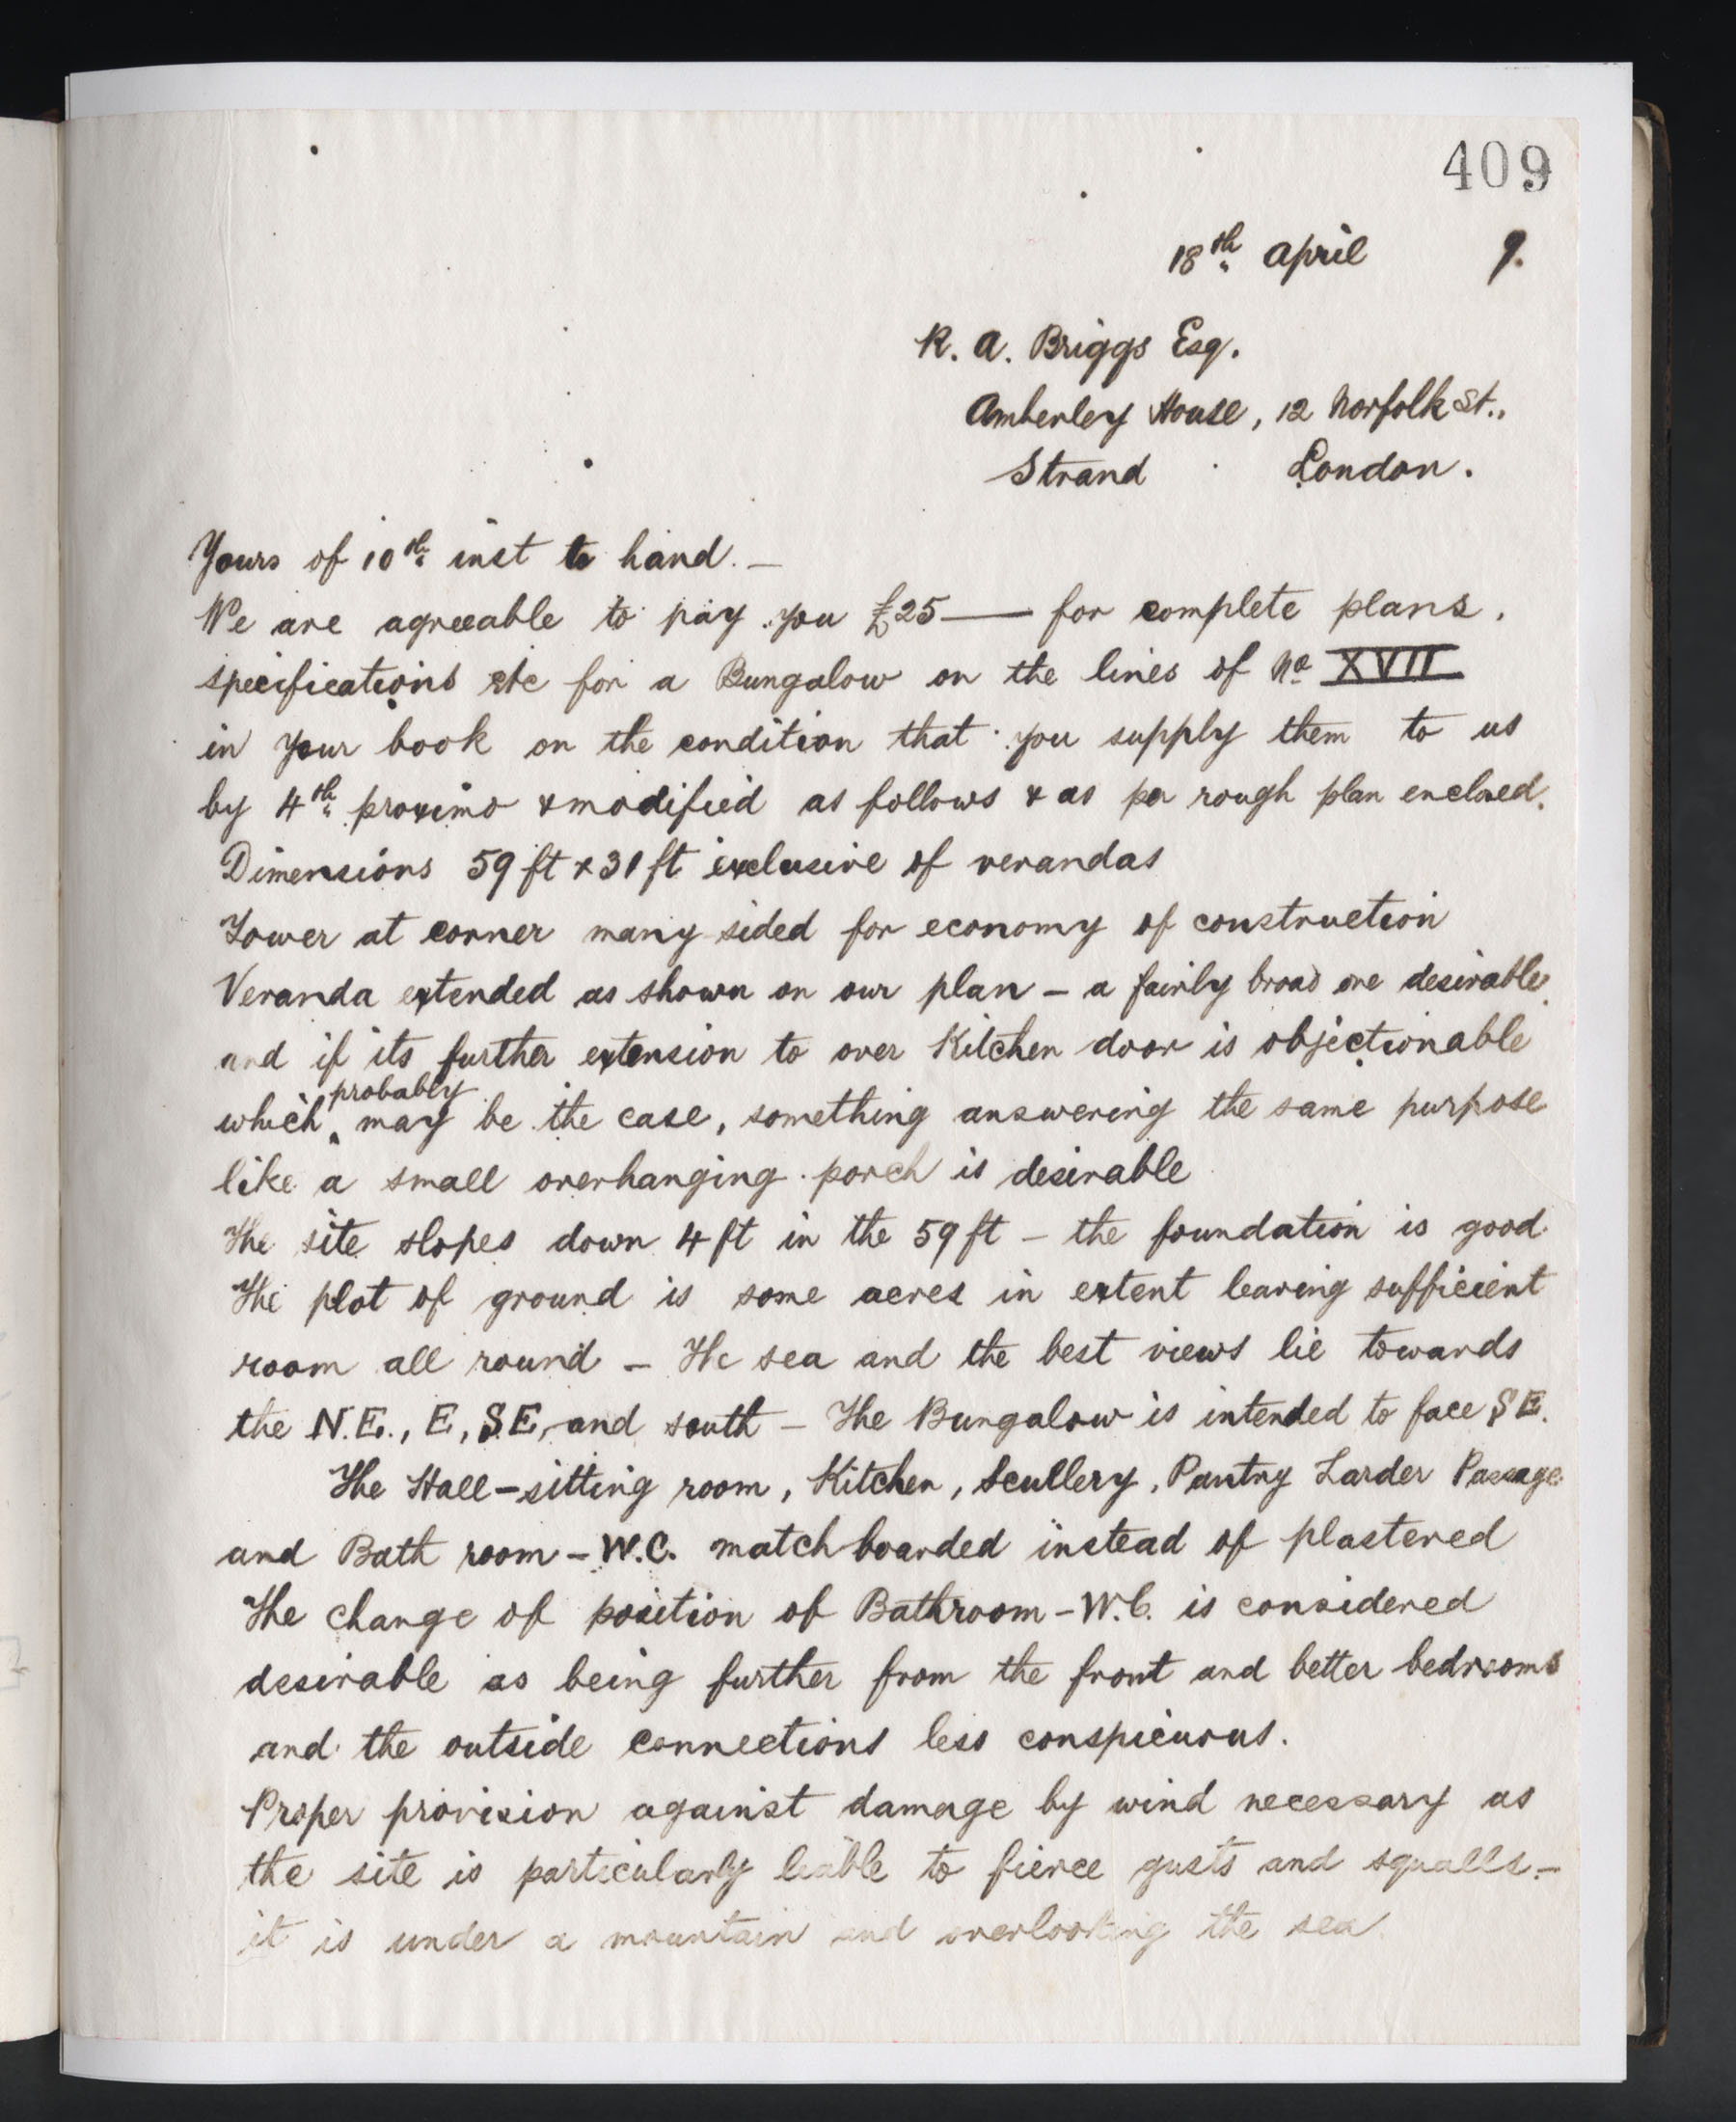 409
18th April 9.
R. A. Briggs Esq.
Amberley House, 12 Norfolk St.,
Strand London.
Yours of 10th inst to hand. —
We are agreeable to pay you £25 — for complete plans,
specifications etc for a Bungalow on the lines of No XVII
in your book on the condition that you supply them to us
by 4th proximo & modified as follows & as per rough plan enclosed.
Dimensions 59 ft x 31 ft exclusive of verandas
Tower at corner many sided for economy of construction
Veranda extended as shown on our plan – a fairly broad one desirable,
and if its further extension to over Kitchen door is objectionable
which probably may be the case, something answering the same purpose
like a small overhanging porch is desirable
The site slopes down 4 ft in the 59 ft – the foundation is good
The plot of ground is some acres in extent leaving sufficient
room all round – The sea and the best views lie towards
the N.E., E, S.E, and south – The Bungalow is intended to face S E.
The Hall–sitting room, Kitchen, Scullery, Pantry Larder Passage
and Bath room – W.C. matchboarded instead of plastered
The change of position of Bathroom – W.C. is considered
desirable as being further from the front and better bedrooms
and the outside connections less conspicuous.
Proper provision against damage by wind necessary as
the site is particularly liable to fierce gusts and squalls. –
it is under a mountain and overlooking the sea